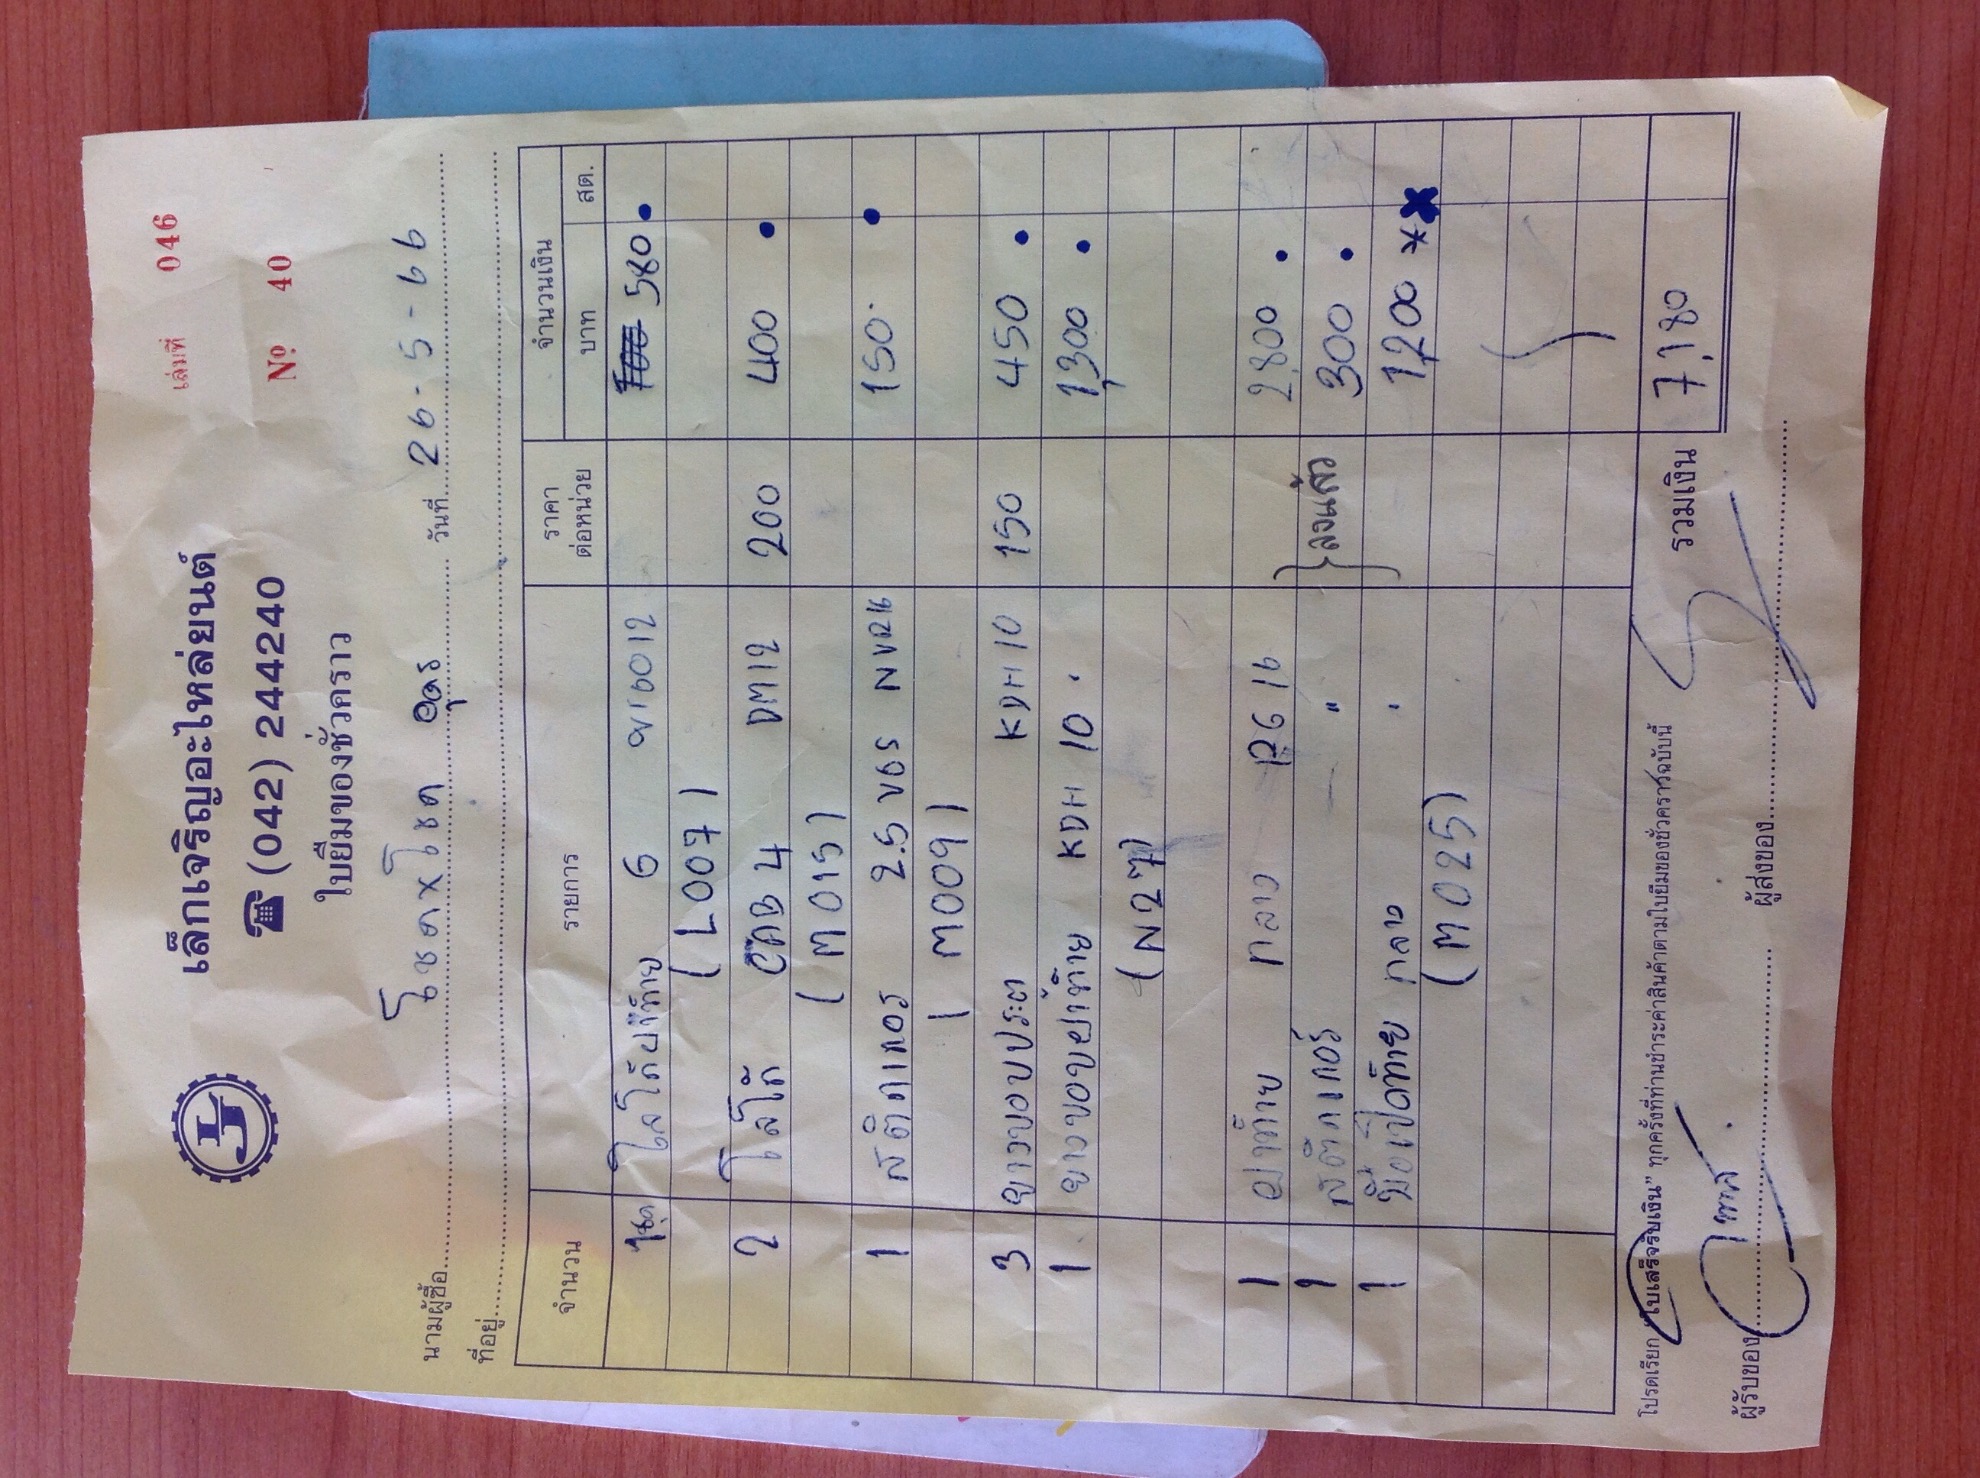 เล่มที่ 046
เล็กเจริญอะไหล่ยนต์
☎ (042) 244240
№ 40
ใบยืมของชั่วคราว
นามผู้ซื้อ โชคxโชค อุดร วันที่ 26-5-66
ที่อยู่
จำนวน รายการ ราคาต่อหน่วย จำนวนเงิน
บาท สต.
1ชุด โลโก้ฝาท้าย G 580
(L007)
2 โลโก้ CAB 4 DM12 200 400
(M015)
1 สติกเกอร์ 2.5 VGS 150
(M009)
3 ยางขอบประตู KDH 10 150 450
1 ยางขอบฝาท้าย KDH 10 1,300
(N27)
1 ฝาท้าย กลาง 2,800
1 สติกเกอร์ " 300
1 มือเปิดท้าย กลาง 1,200
ลงแล้ว
(M025)
รวมเงิน 7,180
โปรดเรียก "ใบเสร็จรับเงิน" ทุกครั้งที่ท่านชำระค่าสินค้าตามใบยืมของชั่วคราวฉบับนี้
ผู้รับของ ผู้ส่งของ